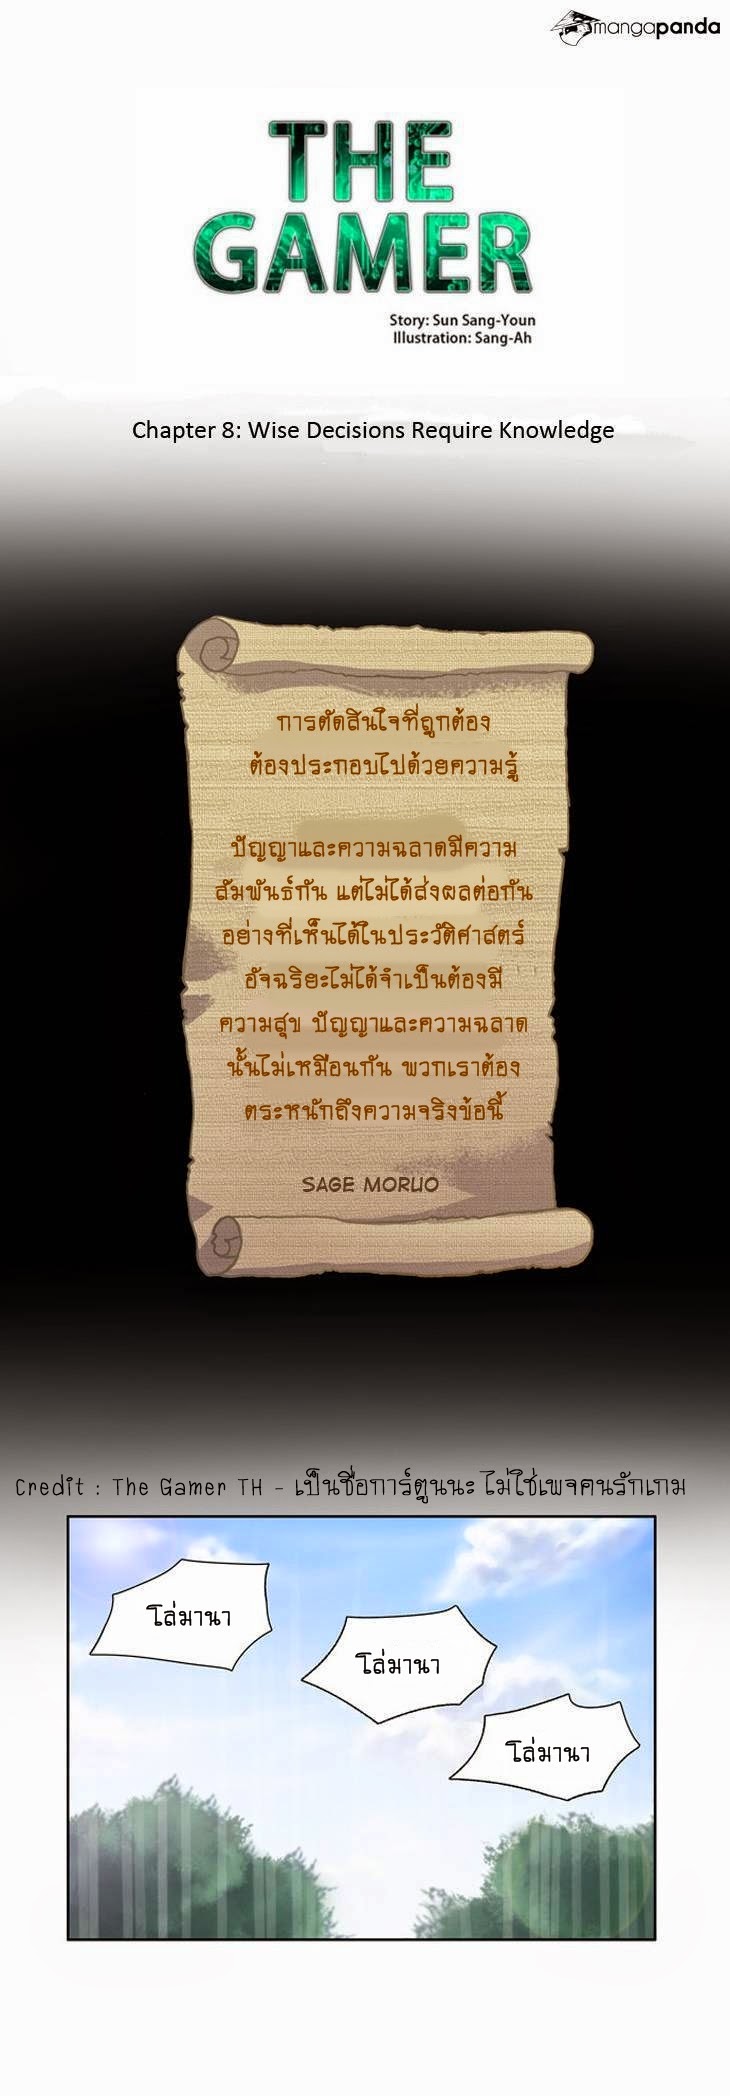 mangapanda
THE
GAMER
Story: Sun Sang-Youn
Illustration: Sang-Ah
Chapter 8: Wise Decisions Require Knowledge
การตัดสินใจที่ถูกต้อง
ต้องประกอบไปด้วยความรู้
ปัญญาและความฉลาดมีความ
สัมพันธ์กัน แต่ไม่ได้ส่งผลต่อกัน
อย่างที่เห็นได้ในประวัติศาสตร์
อัจฉริยะไม่ได้จำเป็นต้องมี
ความสุข ปัญญาและความฉลาด
นั้นไม่เหมือนกัน พวกเราต้อง
ตระหนักถึงความจริงข้อนี้
SAGE MORUO
Credit : The Gamer TH - เป็นชื่อการ์ตูนนะ ไม่ใช่เพจคนรักเกม
โล่มานา
โล่มานา
โล่มานา